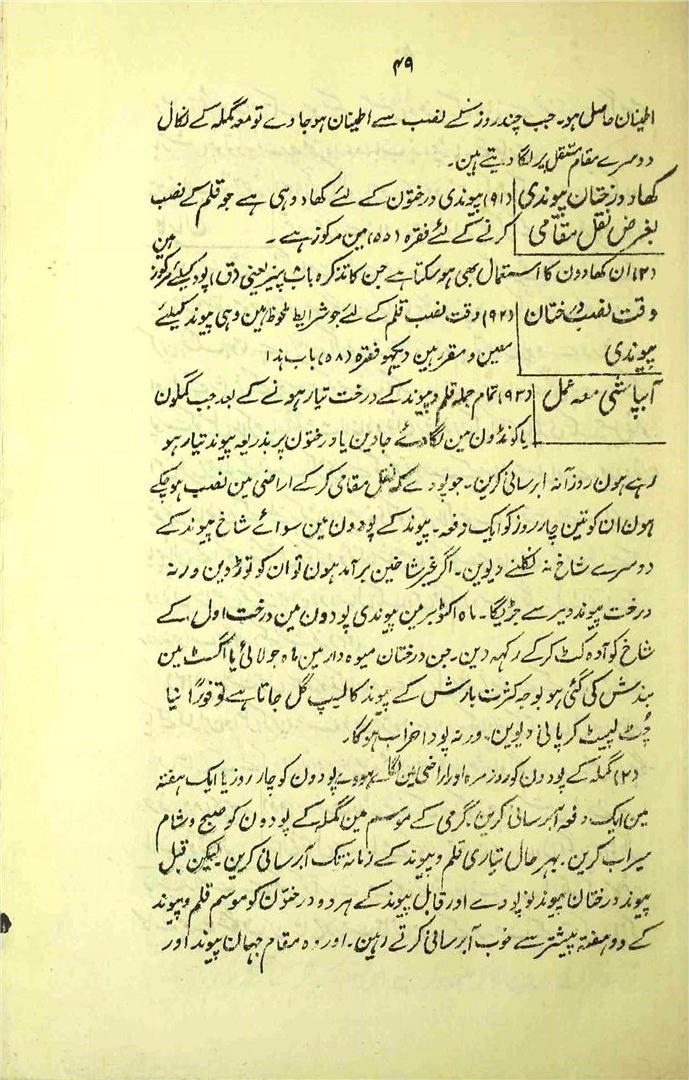 ۴۹
اطینان حاصل ہو۔ جب چند روز کے نصب سے اطینان ہوجاوے تو معہ گملہ کے نکال
دوسرے مقام مستقل پر لگا دیتے ہین۔
کھاد درختان پیوندی (۹۱) پیوندی درختون کے لئے کھاد وہی ہے جو قلم کے نصب
بغرض نقل مقامی کرنے کے لئے فقرہ (۵۵) مین مرکوز ہے۔
(۲) ان کھادون کا استعمال بھی ہوسکتا ہے جن کا تذکرہ باب پنیر یعنی (ق) پود کیلئے مرکوز ہین
وقت نصب درختان (۹۲) وقت نصب قلم کے لئے جو شرایط ملحوظ ہین وہی پیوند کیلئے
پیوندی معین و مقرر ہین دیکہو فقرہ (۵۸) باب ہذا
آبپاشی معہ عمل (۹۳) تمام جملہ قلم و پیوند کے درخت تیار ہونے کے بعد جب گملون
یا کونڈون مین لگا دئے جاوین یا درختون پر بذریعہ پیوند تیار ہو
رہے ہون روزآنہ ابرسانی کرین۔ جو پودے کہ نقل مقامی کرکے اراضی مین نصب ہوچکے
ہون ان کو تین چار روز کو ایک دفعہ۔ پیوند کے پودون مین سوائے شاخ پیوند کے
دوسرے شاخ نہ نکلنے دیوین۔ اگر غیر شاخین برآمد ہون تو ان کو توڑ دین ورنہ
درخت پیوند دیر سے جڑیگا۔ ماہ اکٹوبر مین پیوندی پودون مین درخت اول کے
شاخ کو آدہ کٹ کرکے رکہہ دین۔ جن درختان میوہ دار مین ماہ جولائی یا اگسٹ مین
بندش کی گئی ہو بوجہ کثرت بارش کے پیوند کا لیپ گل جاتا ہے تو فورًا نیا
چٹ لپیٹ کر پانی دیوین۔ ورنہ پودا خراب ہوگا۔
(۲) گملہ کے پودون کو روزمرہ اور اراضی مین لگے ہووے پودون کو چار روز یا ایک ہفتہ
مین ایک دفعہ آبرسانی کرین۔ گرمی کے موسم مین گملہ کے پودون کو صبح و شام
سیراب کرین۔ بہرحال تیاری قلم و پیوند کے زمانہ تک آبرسانی کرین لیکن قبل
پیوند درختان پیوند نو پودے اور قابل پیوند کے ہر دو درختون کو موسم قلم و پیوند
کے دو ہفتہ پیشتر سے خوب آبرسانی کرتے رہین۔ اور وہ مقام جہان پیوند اور